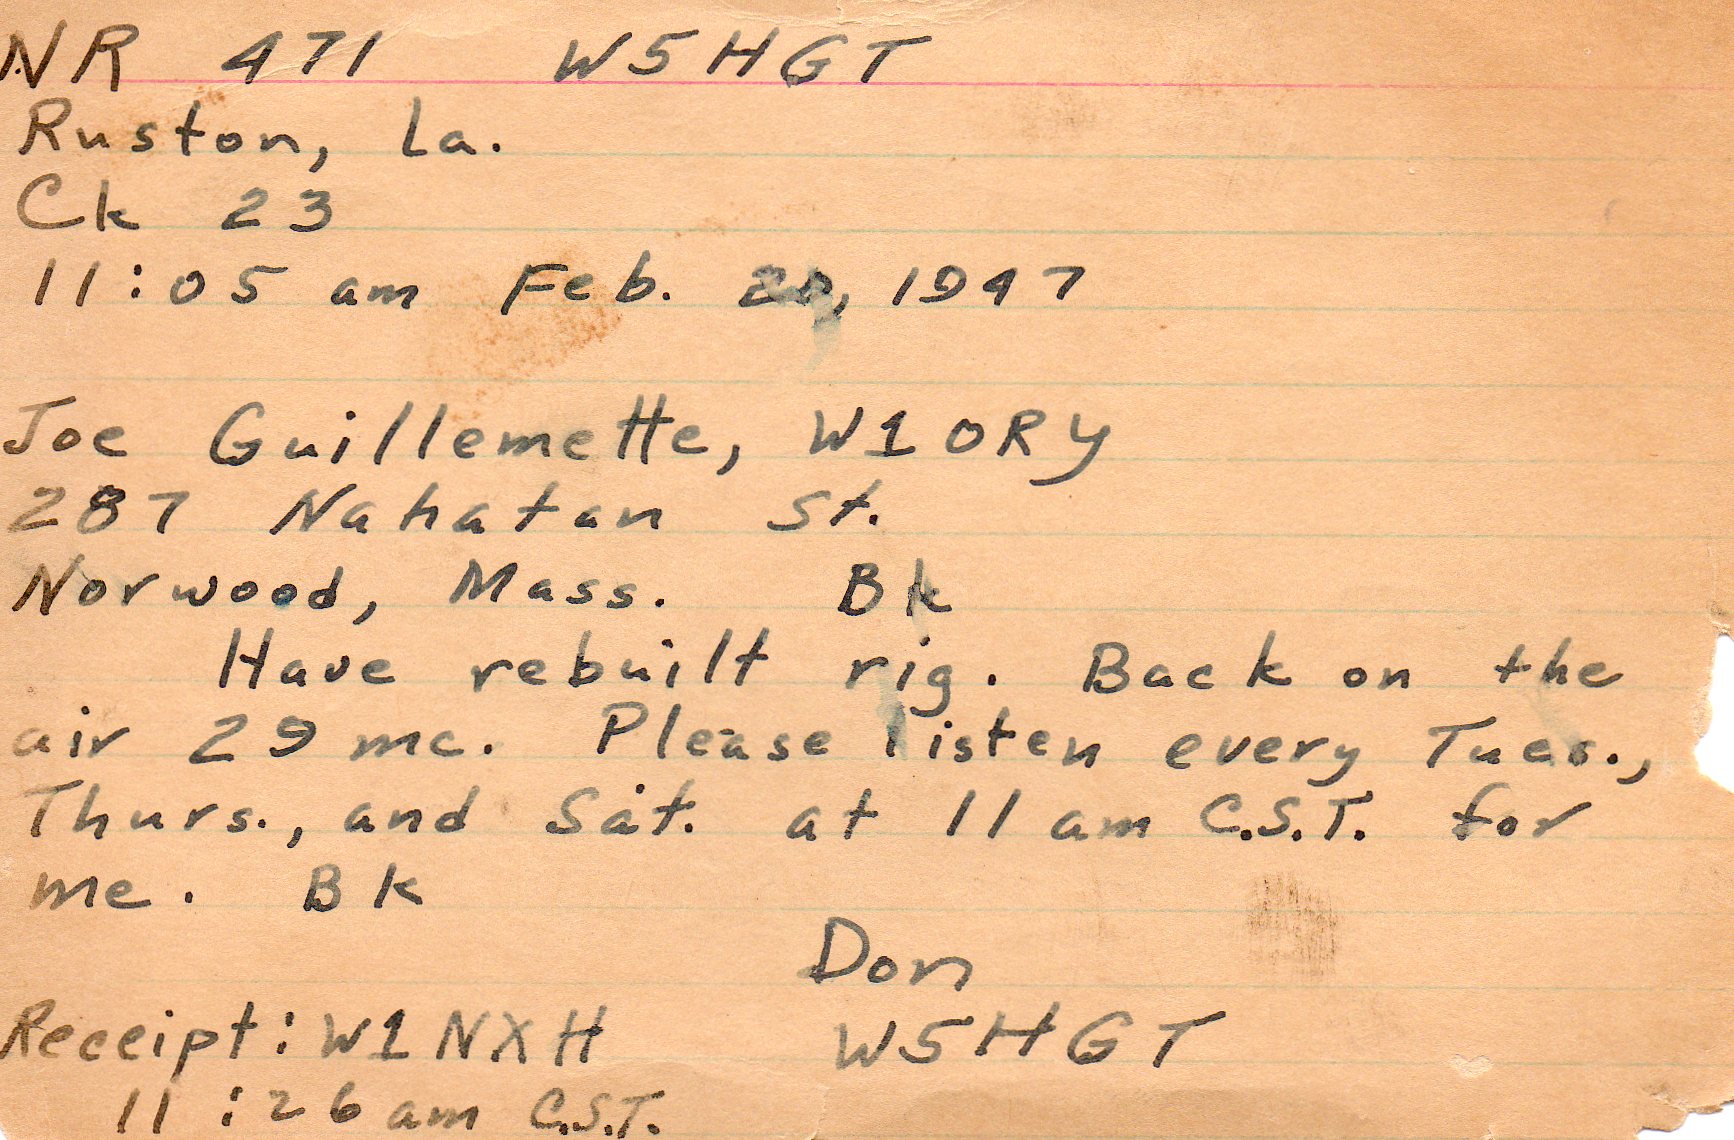 NR 471 W5HGT
Ruston, La.
Ck 23
11:05 am Feb. 20, 1947
Joe Guillemette, W1ORY
287 Nahatan St.
Norwood, Mass. Bk
Have rebuilt rig. Back on the
air 29 mc. Please listen every Tues.,
Thurs., and Sat. at 11 am C.S.T. for
me. Bk
Don
Receipt: W1NXH W5HGT
11:26 am C.S.T.